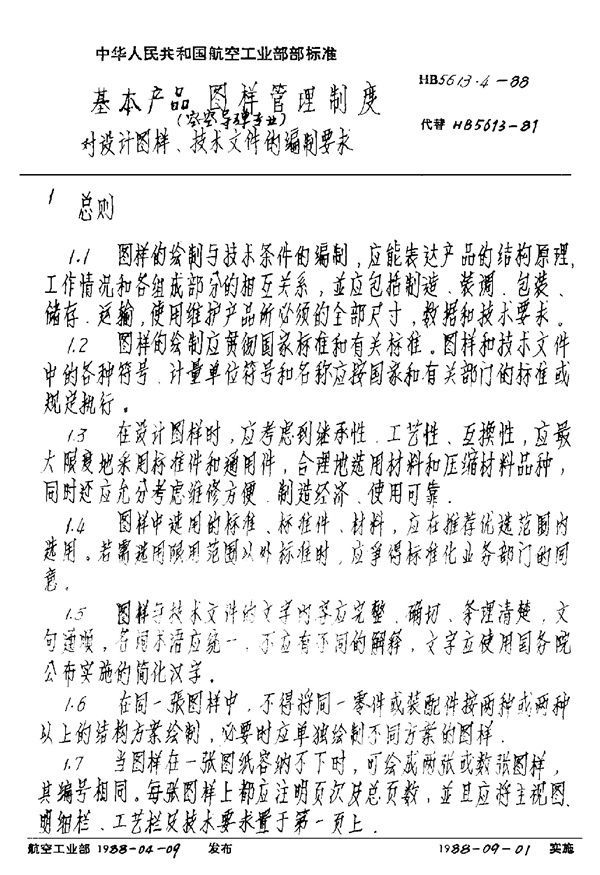 中华人民共和国航空工业部部标准
HB5613·4-88
基本产品 图样管理制度
(空空导弹专业)
代替 HB5613-81
对设计图样、技术文件的编制要求
1 总则
1.1 图样的绘制与技术条件的编制,应能表达产品的结构原理,
工作情况和各组成部分的相互关系,並应包括制造、装调、包装、
储存、运输,使用维护产品所必须的全部尺寸,数据和技术要求。
1.2 图样的绘制应贯彻国家标准和有关标准。图样和技术文件
中的各种符号、计量单位符号和名称应按国家和有关部门的标准或
规定执行。
1.3 在设计图样时,应考虑到继承性、工艺性、互换性,应最
大限度地采用标准件和通用件,合理地选用材料和压缩材料品种,
同时还应充分考虑维修方便、制造经济、使用可靠.
1.4 图样中选用的标准、标准件、材料,应在推荐优选范围内
选用。若需选用限用范围以外标准时,应争得标准化业务部门的同
意。
1.5 图样与技术文件的文字内容应完整、确切、条理清楚、文
句通顺,名词术语应统一,不应有不同的解释,文字应使用国务院
公布实施的简化汉字。
1.6 在同一张图样中,不得将同一零件或装配件按两种或两种
以上的结构方案绘制,必要时应单独绘制不同方案的图样.
1.7 当图样在一张图纸容纳不下时,可绘成两张或数张图样,
其编号相同。每张图样上都应注明页次及总页数,並且应将主视图、
明细栏、工艺栏及技术要求置于第一页上.
航空工业部 1988-04-09 发布 1988-09-01 实施